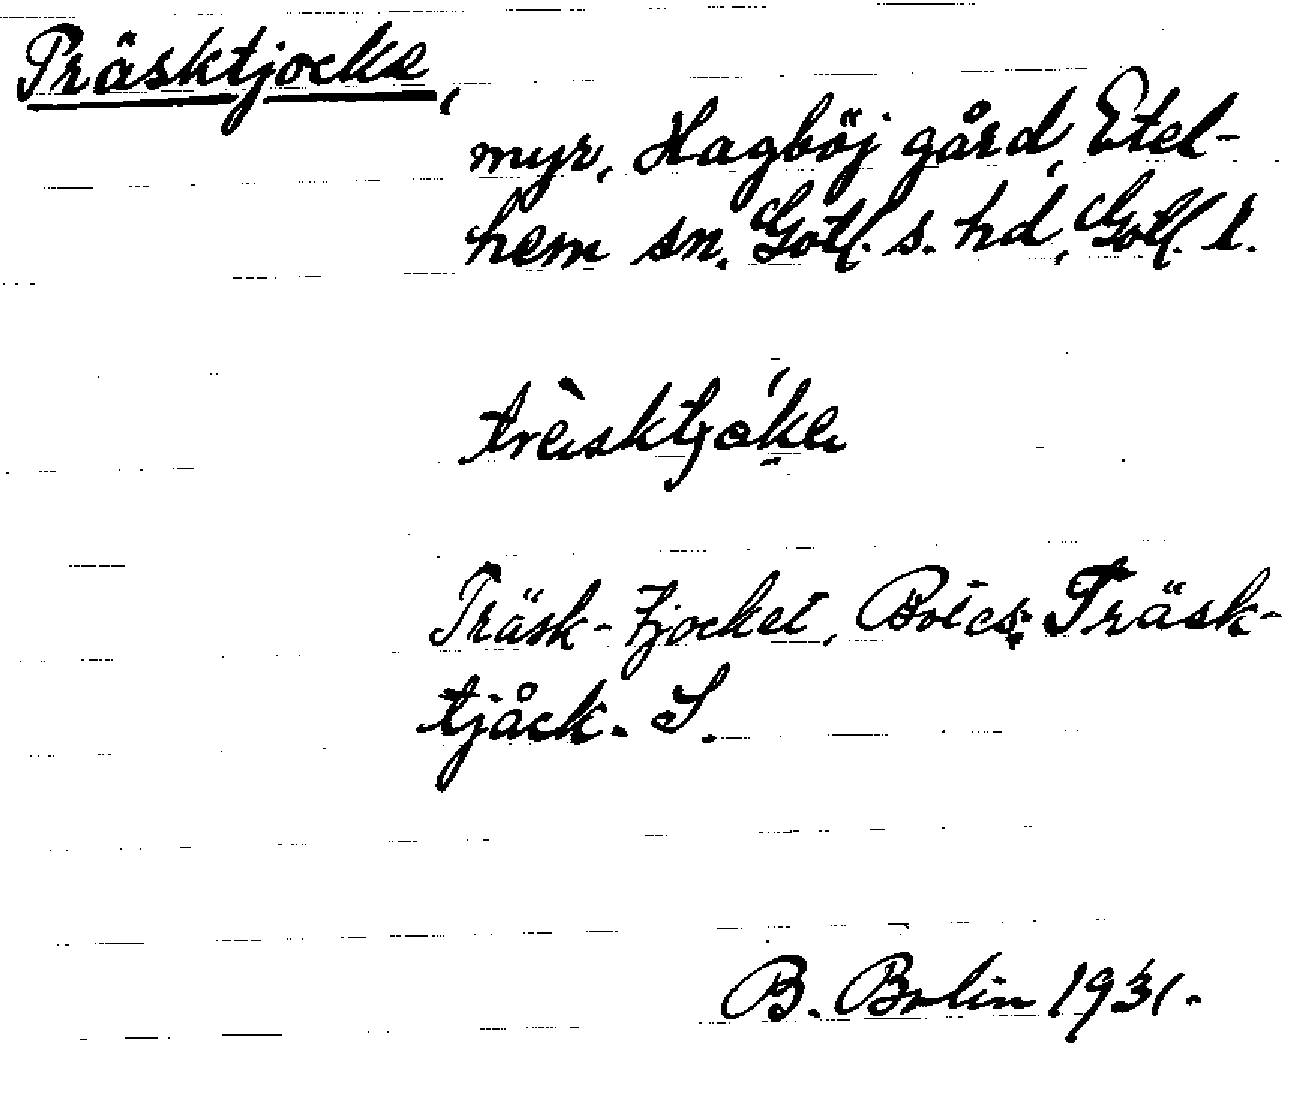 Träsktjocke,
myr, Hagböj gård, Etel-
hem sn. Gotl. s. hd, Gotl. l.
trèisktjåke
Träsk-Tjocket, Träsk-
tjåck. S.
B. Bolin 1931.